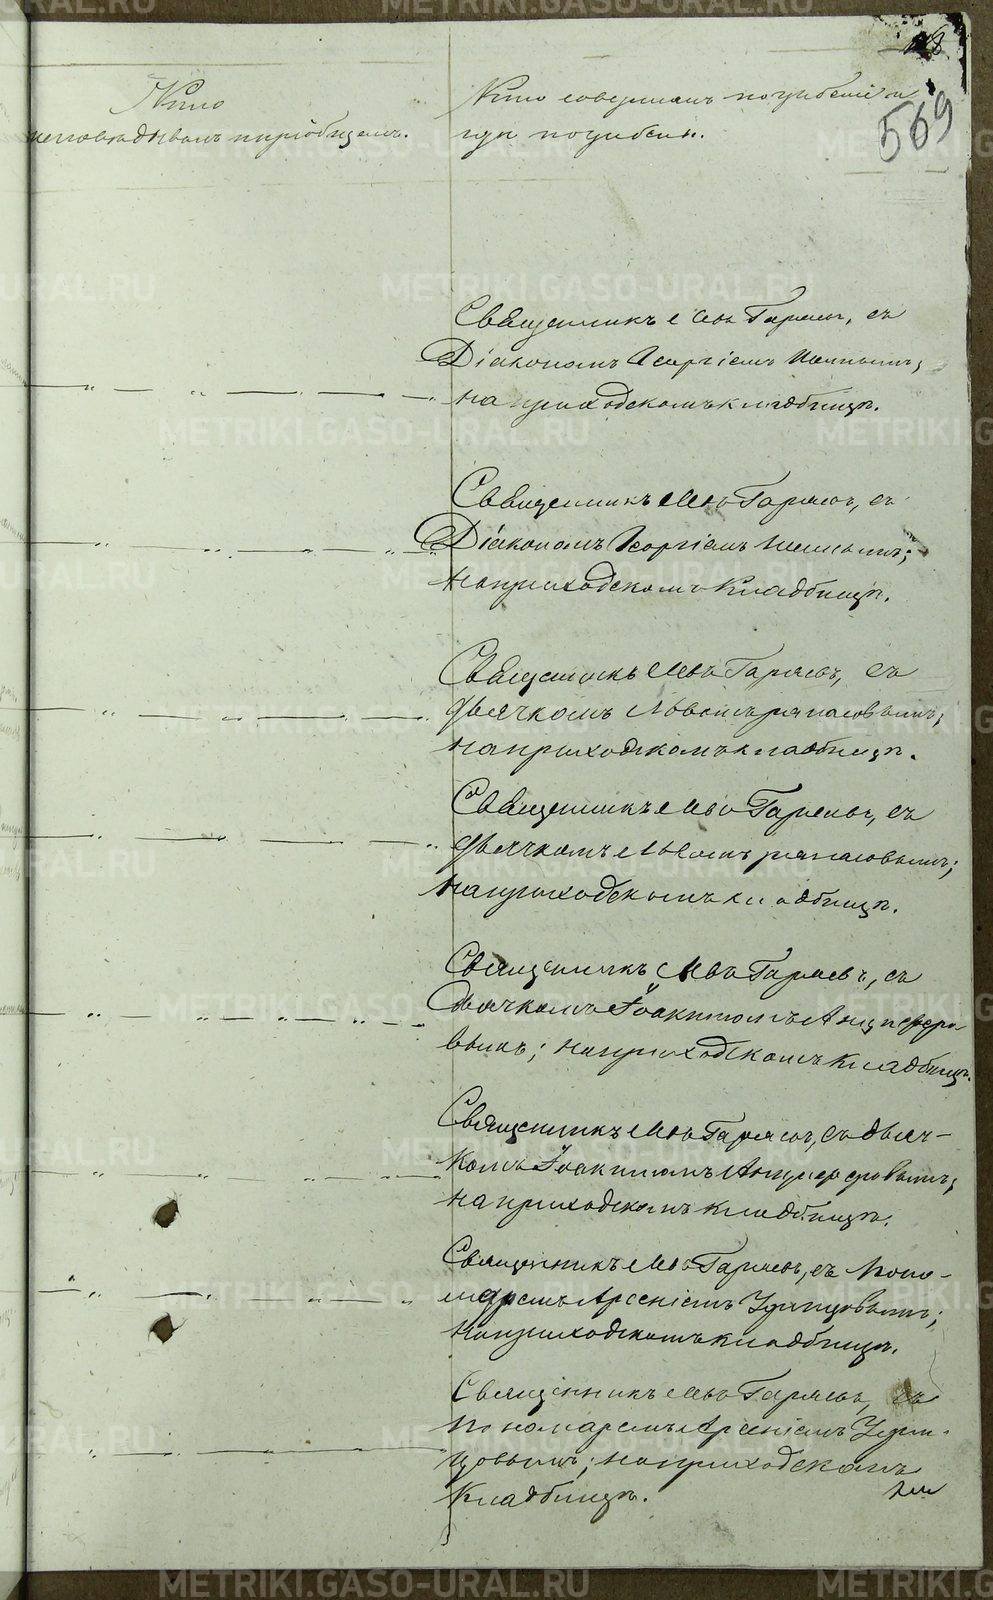 118
569
Кто
исповѣдывалъ и пріобщалъ.
Кто совершалъ погребеніе и
гдѣ погребены.
Священникъ Левъ Гаряевъ, съ
Діакономъ Георгіемъ
на приходскомъ кладбищѣ.
Священникъ Левъ Гаряевъ, съ
Діакономъ Георгіемъ
на приходскомъ кладбищѣ.
Священникъ Левъ Гаряевъ, съ
дьячкомъ Львомъ
на приходскомъ кладбищѣ.
Священникъ Левъ Гаряевъ, съ
дьячкомъ Львомъ
на приходскомъ кладбищѣ.
Священникъ Левъ Гаряевъ, съ
дьячкомъ Іоакимомъ Анциферо-
вымъ; на приходскомъ кладбищѣ.
Священникъ Левъ Гаряевъ, съ дьяч-
комъ Іоакимомъ Анциферовымъ;
на приходскомъ кладбищѣ.
Священникъ Левъ Гаряевъ, съ Поно-
маремъ Арсеніемъ Удинцовымъ;
на приходскомъ кладбищѣ.
Священникъ Левъ Гаряевъ, съ
пономаремъ Арсеніемъ Удин-
цовымъ; на приходскомъ
кладбищѣ.
METRIKI.GASO-URAL.RU